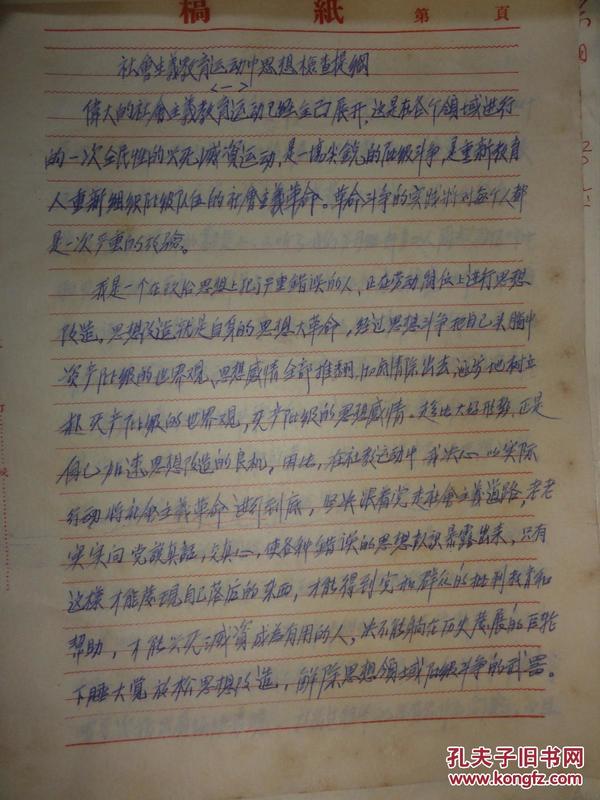 稿 紙 第 頁
社會主義教育运动中思想檢查提綱
<一>
偉大的社會主義教育运动已經全面展开，这是在各个領域进行
的一次全民性的兴无灭資运动，是一場尖銳的阶級斗争，是重新教育
人重新組織阶級队伍的社會主義革命。革命斗争的实践將对每个人都
是一次严重的考驗。
我是一个在政治思想上犯严重錯誤的人，正在劳动崗位上进行思想
改造，思想改造就是自身的思想大革命，經过思想斗争把自己头腦中
資产阶級的世界观、思想感情全部推翻，加底清除出去，逐步地树立
起无产阶級的世界观，无产阶級的思想感情。趁此大好形势，正是
自己加速思想改造的良机，因此，在社教运动中我决心以实际
行动將社会主義革命进行到底，坚决跟着党走社會主義道路，老老
实实向党談真話，交真心，使各种錯誤的思想認识暴露出来，只有
这樣才能發現自己落后的东西，才能得到党和群众的批判教育和
幫助，才能兴无灭資成为有用的人，决不能躺在历史發展的巨輪
下睡大觉放松思想改造，解除思想領域阶級斗争的武器。
孔夫子旧书网
www.kongfz.com